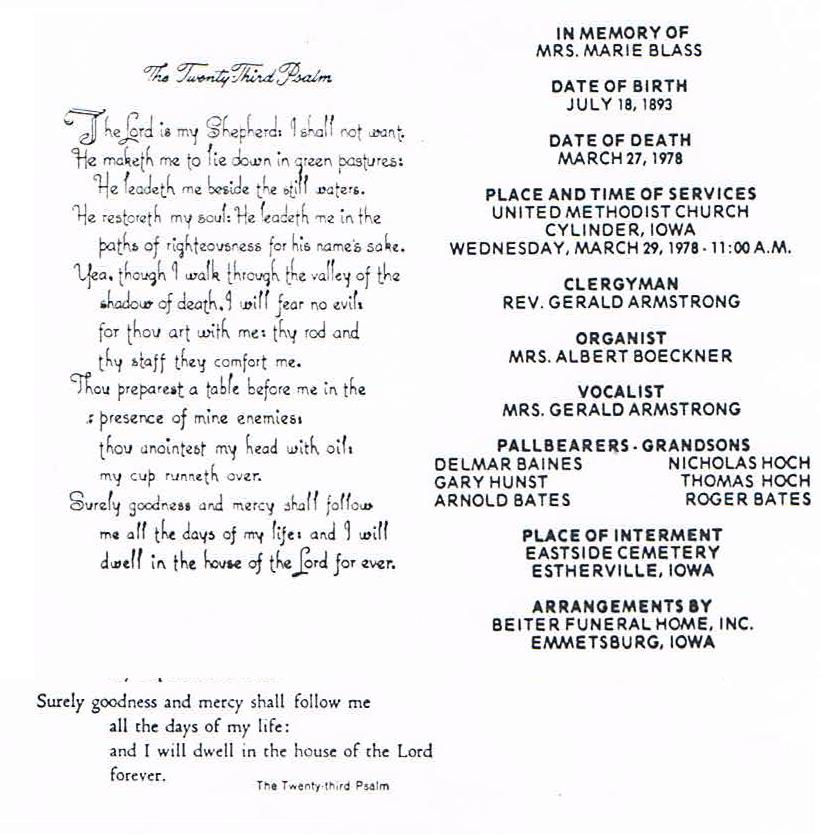 The Twenty-Third Psalm
The Lord is my Shepherd: I shall not want.
He maketh me to lie down in green pastures:
He leadeth me beside the still waters.
He restoreth my soul: He leadeth me in the
paths of righteousness for his name's sake.
Yea, though I walk through the valley of the
shadow of death, I will fear no evil:
for thou art with me: thy rod and
thy staff they comfort me.
Thou preparest a table before me in the
: presence of mine enemies:
thou anointest my head with oil:
my cup runneth over.
Surely goodness and mercy shall follow
me all the days of my life: and I will
dwell in the house of the Lord for ever.
IN MEMORY OF
MRS. MARIE BLASS
DATE OF BIRTH
JULY 18, 1893
DATE OF DEATH
MARCH 27, 1978
PLACE AND TIME OF SERVICES
UNITED METHODIST CHURCH
CYLINDER, IOWA
WEDNESDAY, MARCH 29, 1978 - 11:00 A.M.
CLERGYMAN
REV. GERALD ARMSTRONG
ORGANIST
MRS. ALBERT BOECKNER
VOCALIST
MRS. GERALD ARMSTRONG
PALLBEARERS - GRANDSONS
DELMAR BAINES NICHOLAS HOCH
GARY HUNST THOMAS HOCH
ARNOLD BATES ROGER BATES
PLACE OF INTERMENT
EASTSIDE CEMETERY
ESTHERVILLE, IOWA
ARRANGEMENTS BY
BEITER FUNERAL HOME, INC.
EMMETSBURG, IOWA
Surely goodness and mercy shall follow me
all the days of my life:
and I will dwell in the house of the Lord
forever.
The Twenty-third Psalm